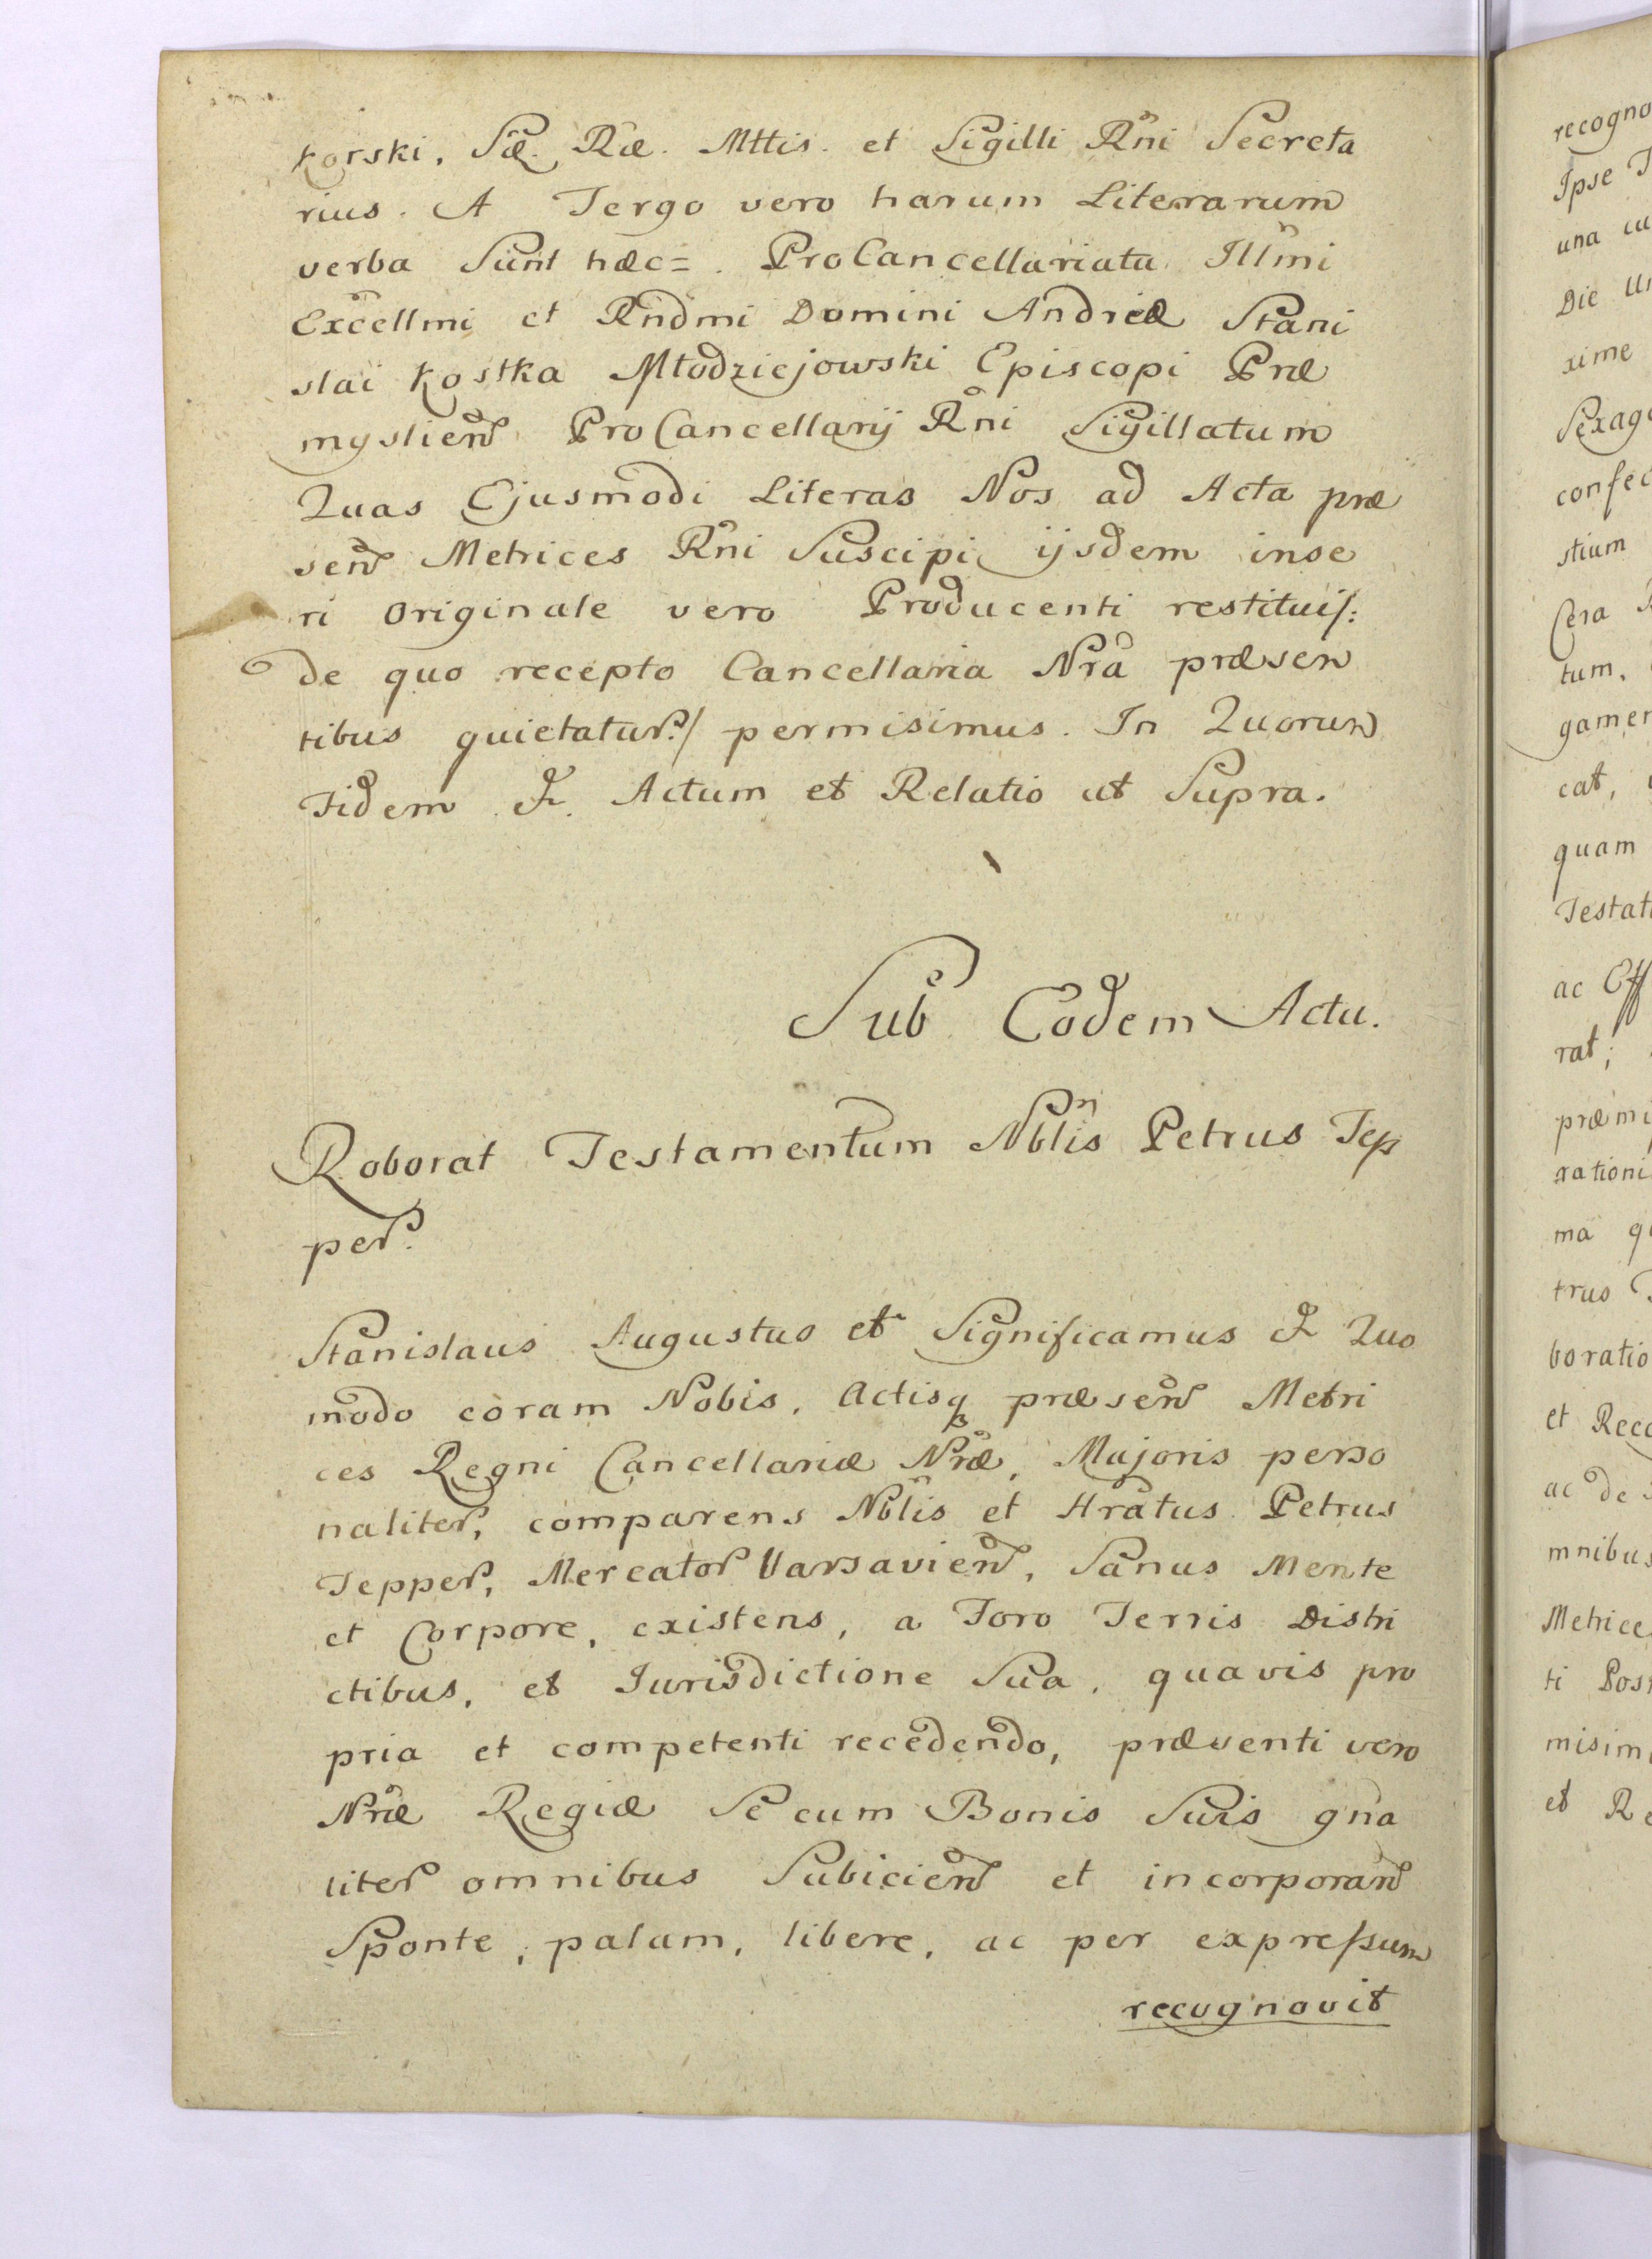 korski, Sæ. Ræ. Mttis. et Sigilli Rñi Secreta
rius. A Tergo vero harum Literarum
verba Sunt hæc=. ProCancellariatu Illm̃i
Excellm̃i et Rñdmi Domini Andreæ Stani
slai Kostka Młodziejowski Episcopi Præ
myslieñ ProCancellarij Rñi Sigillatum
Quas Ejusmodi Literas Nos ad Acta præ
señ Metrices Rñi Suscipi ijsdem inse
ri originale vero Producenti restitui/:
de quo recepto Cancellaria Nr̃a præsen
tibus quietatur:/ permisimus. In Quorum
Fidem &. Actum et Relatio ut Supra.
Sub Eodem Actu.
Roborat Testamentum Nbl̃is Petrus Tep
per.
Stanislaus Augustus et Significamus & Quo
modo coram Nobis, Actisq præseñ Metri
ces Regni Cancellariæ Nr̃æ, Majoris perso
naliter, comparens Nbl̃is et Hr̃atus Petrus
Tepper, Mercator Varsavieñ, Sanus Mente
et Corpore, existens, a Foro Terris Distri
ctibus, et Jurisdictione Sua, quavis pro
pria et competenti recedendo, præsenti vero
Nr̃æ Regiæ Se cum Bonis Suis gña
liter omnibus Subicieñ et incorporañ
Sponte, palam, libere, ac per expressum
recognovit
recogno
Ipse T
una cu
Die Un
xime
Sexage
confec
stium
Cera
tum,
gamen
cat,
quam
Testat
ac Off
rat;
præmi
rationi
ma qu
trus
boratio
et Reco
ac de
mnibus
Metrice
ti Post
misim
et Re